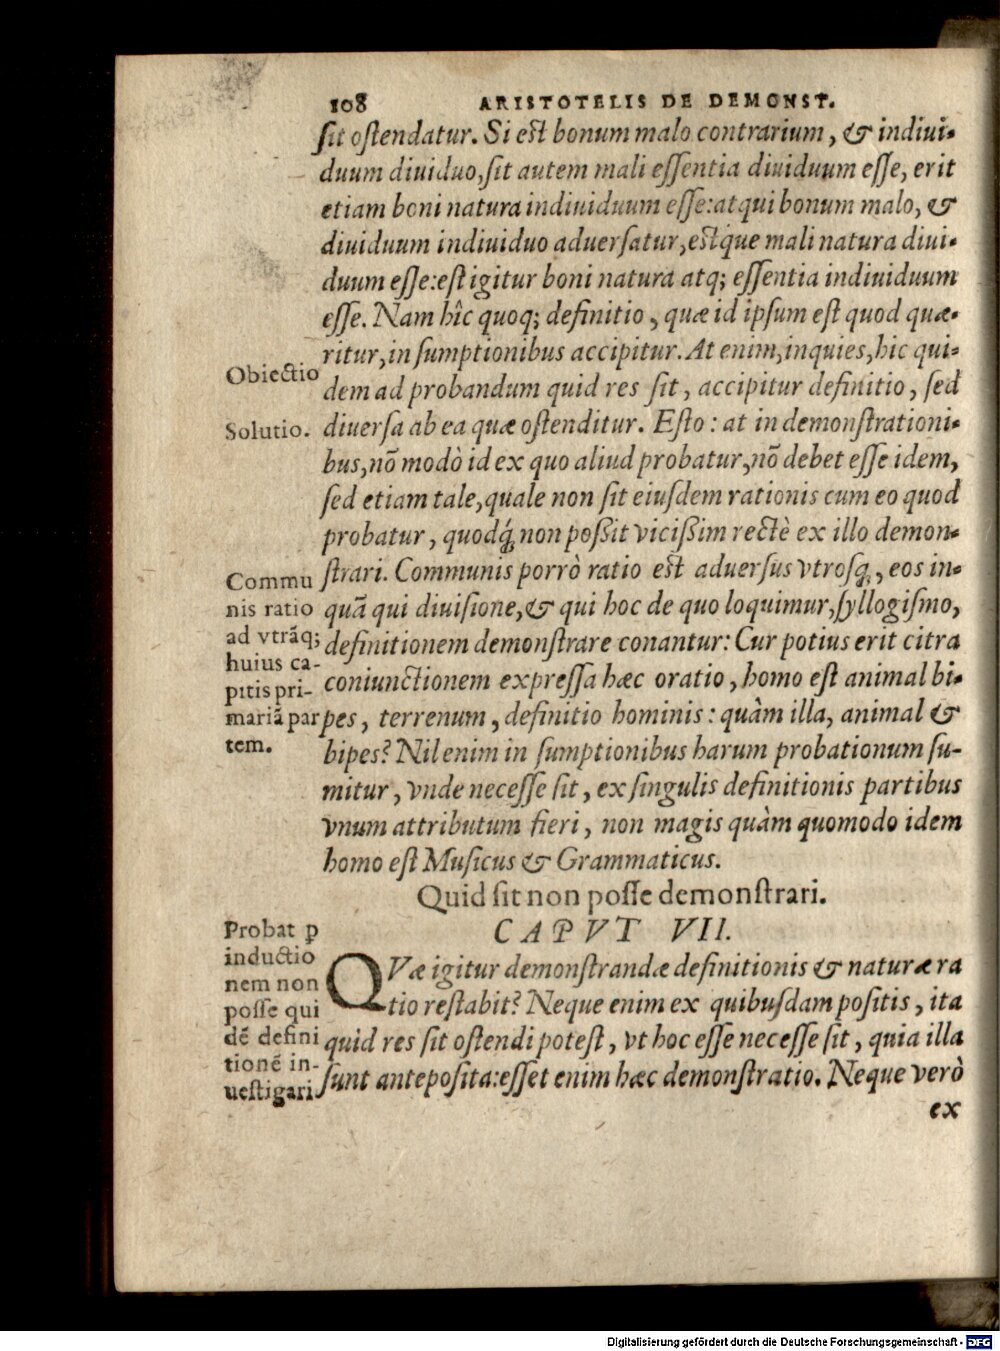 108 ARISTOTELIS DE DEMONST.
sit ostendatur. Si est bonum malo contrarium, & indiui-
duum diuiduo, sit autem mali essentia diuiduum esse, erit
etiam boni natura indiuiduum esse: atqui bonum malo, &
diuiduum indiuiduo aduersatur, estque mali natura diui-
duum esse: est igitur boni natura atq; essentia indiuiduum
esse. Nam hîc quoq; definitio, quæ id ipsum est quod quæ-
ritur, in sumptionibus accipitur. At enim, inquies, hic qui-
dem ad probandum quid res sit, accipitur definitio, sed
diuersa ab ea quæ ostenditur. Esto: at in demonstrationi-
bus, nõ modò id ex quo aliud probatur, nõ debet esse idem,
sed etiam tale, quale non sit eiusdem rationis cum eo quod
probatur, quodq́; non possit vicissim rectè ex illo demon-
strari. Communis porrò ratio est aduersus vtrosq;, eos in-
quã qui diuisione, & qui hoc de quo loquimur, syllogismo,
definitionem demonstrare conantur: Cur potius erit citra
coniunctionem expressa hæc oratio, homo est animal bi-
pes, terrenum, definitio hominis: quàm illa, animal &
bipes? Nil enim in sumptionibus harum probationum su-
mitur, vnde necesse sit, ex singulis definitionis partibus
vnum attributum fieri, non magis quàm quomodo idem
homo est Musicus & Grammaticus.
Obiectio
Solutio.
Commu
nis ratio
ad vtrãq;
huius ca-
pitis pri-
mariã par
tem.
Quid sit non posse demonstrari.
CAPVT VII.
QVæ igitur demonstrandæ definitionis & naturæ ra
tio restabit? Neque enim ex quibusdam positis, ita
quid res sit ostendi potest, vt hoc esse necesse sit, quia illa
sunt anteposita: esset enim hæc demonstratio. Neque verò
ex
Probat ꝑ
inductio
nem non
posse qui
dẽ defini
tionẽ in-
uestigari
Digitalisierung gefördert durch die Deutsche Forschungsgemeinschaft - DFG